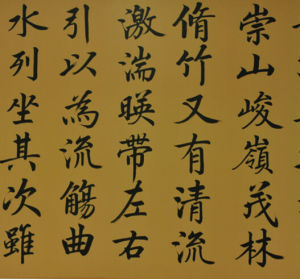 崇山峻嶺茂林
脩竹又有清流
激湍暎帶左右
引以為流觴曲
水列坐其次雖